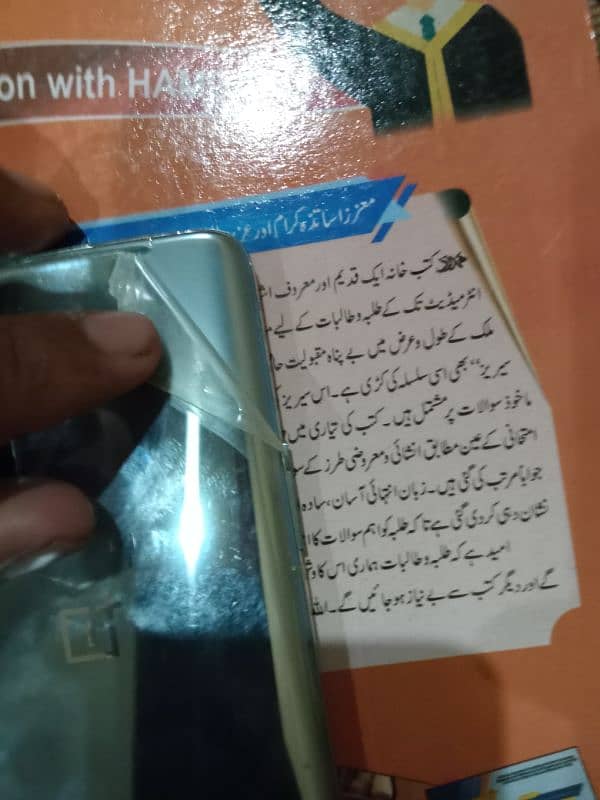 on with HAM
معزز اساتذہ کرام اور عز
کتب خانہ ایک قدیم اور معروف
انٹرمیڈیٹ تک کے طلبہ و طالبات کے لیے
ملک کے طول و عرض میں بے پناہ مقبولیت
سیریز‘‘ بھی اسی سلسلہ کی کڑی ہے۔ اس سیریز
ماخوذ سوالات پر مشتمل ہیں۔ کتب کی تیاری میں
امتحانی کے عین مطابق انشائی و معروضی طرز کے
جواباً مرتب کی گئی ہیں۔ زبان انتہائی آسان، سادہ
نشان دہی کر دی گئی ہے تاکہ طلبہ کو اہم سوالات کا
امید ہے کہ طلبہ و طالبات ہماری اس کاوش
گے اور دیگر کتب سے بے نیاز ہو جائیں گے۔ اللہ